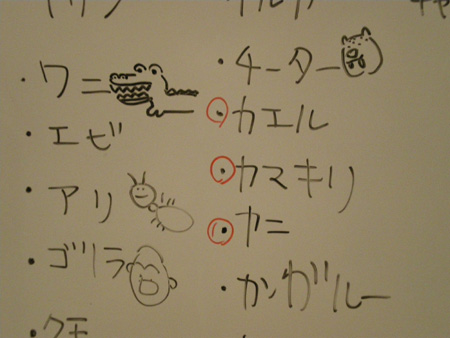 ・ワニ
・エビ
・アリ
・ゴリラ
・クモ
・チーター
・カエル
・カマキリ
・カニ
・カンガルー